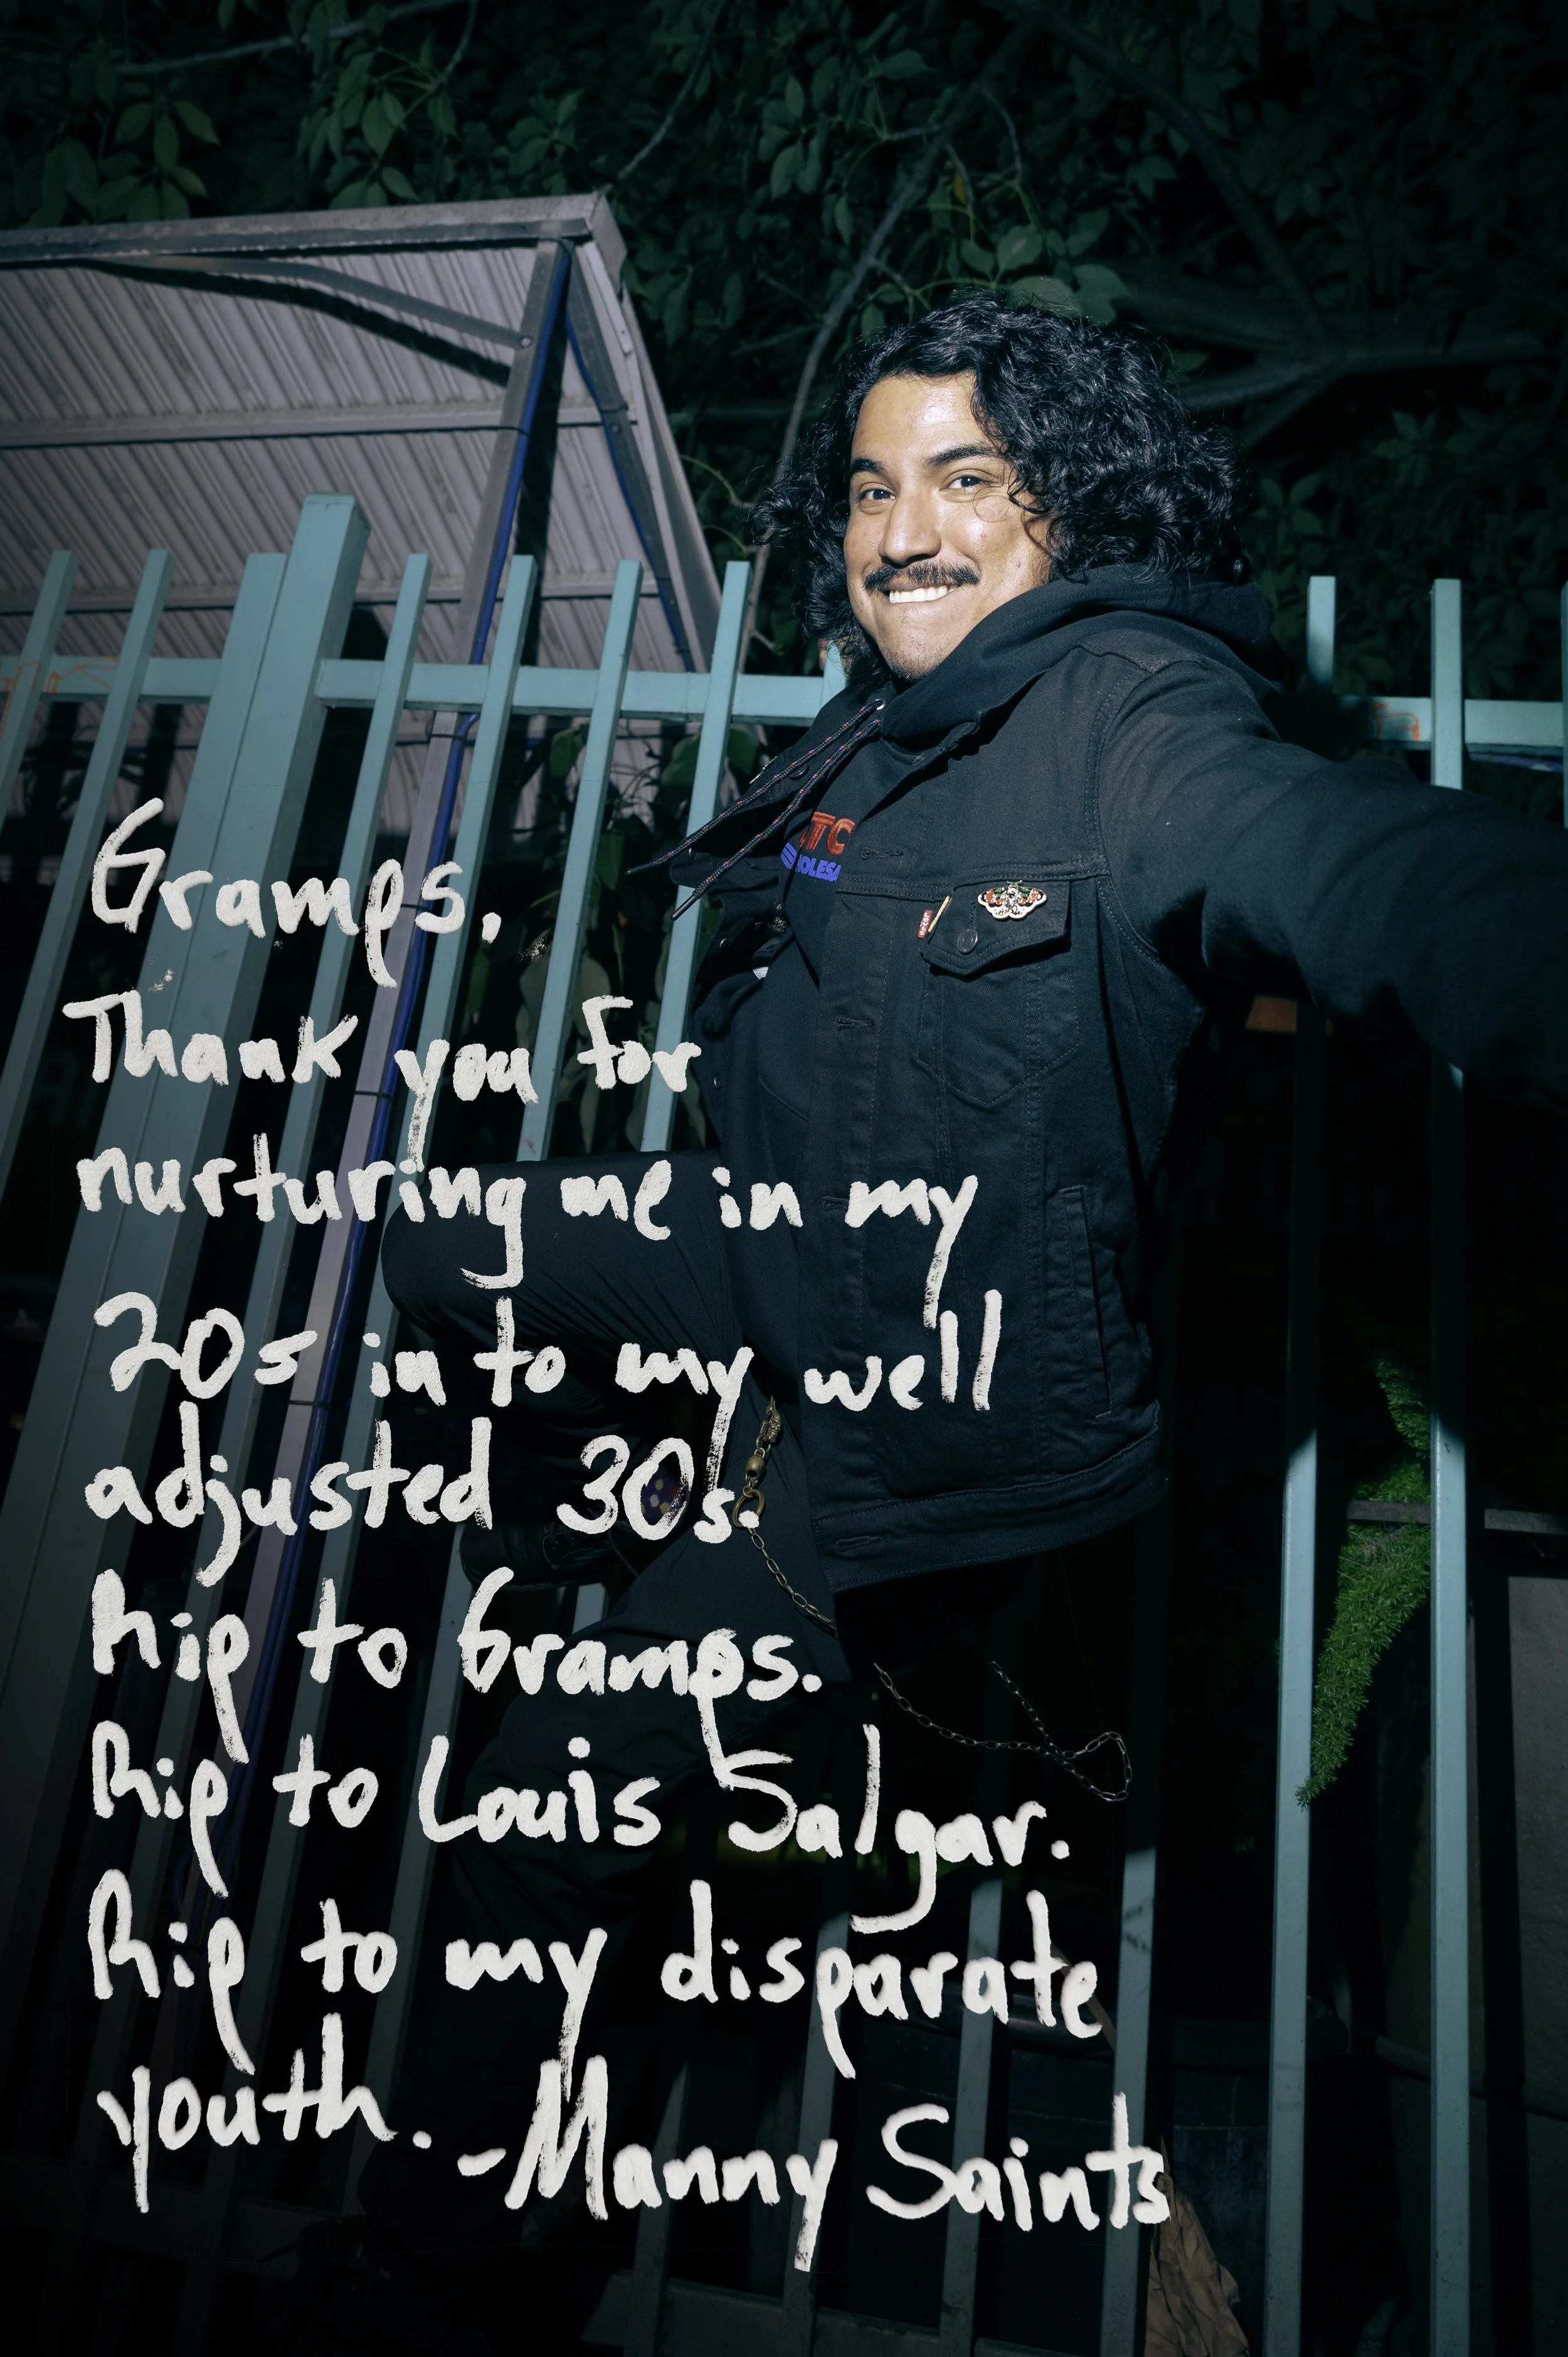 TC
OLESA
Gramps,
Thank you for
nurturing me in my
20s in to my well
adjusted 30s.
Rip to Gramps.
Rip to Louis Salgar.
Rip to my disparate
youth.
-Manny Saints